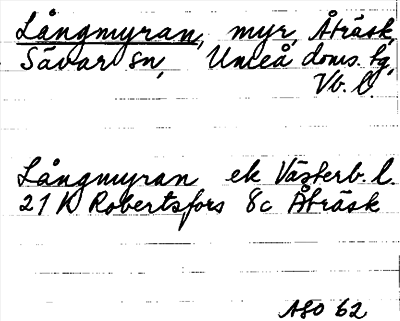 Långmyran, myr, Åträsk,
Sävar sn, Umeå doms. tg,
Vb. l.
Långmyran ek Västerb. l.
21 K Robertsfors 8c Åträsk
ASO 62